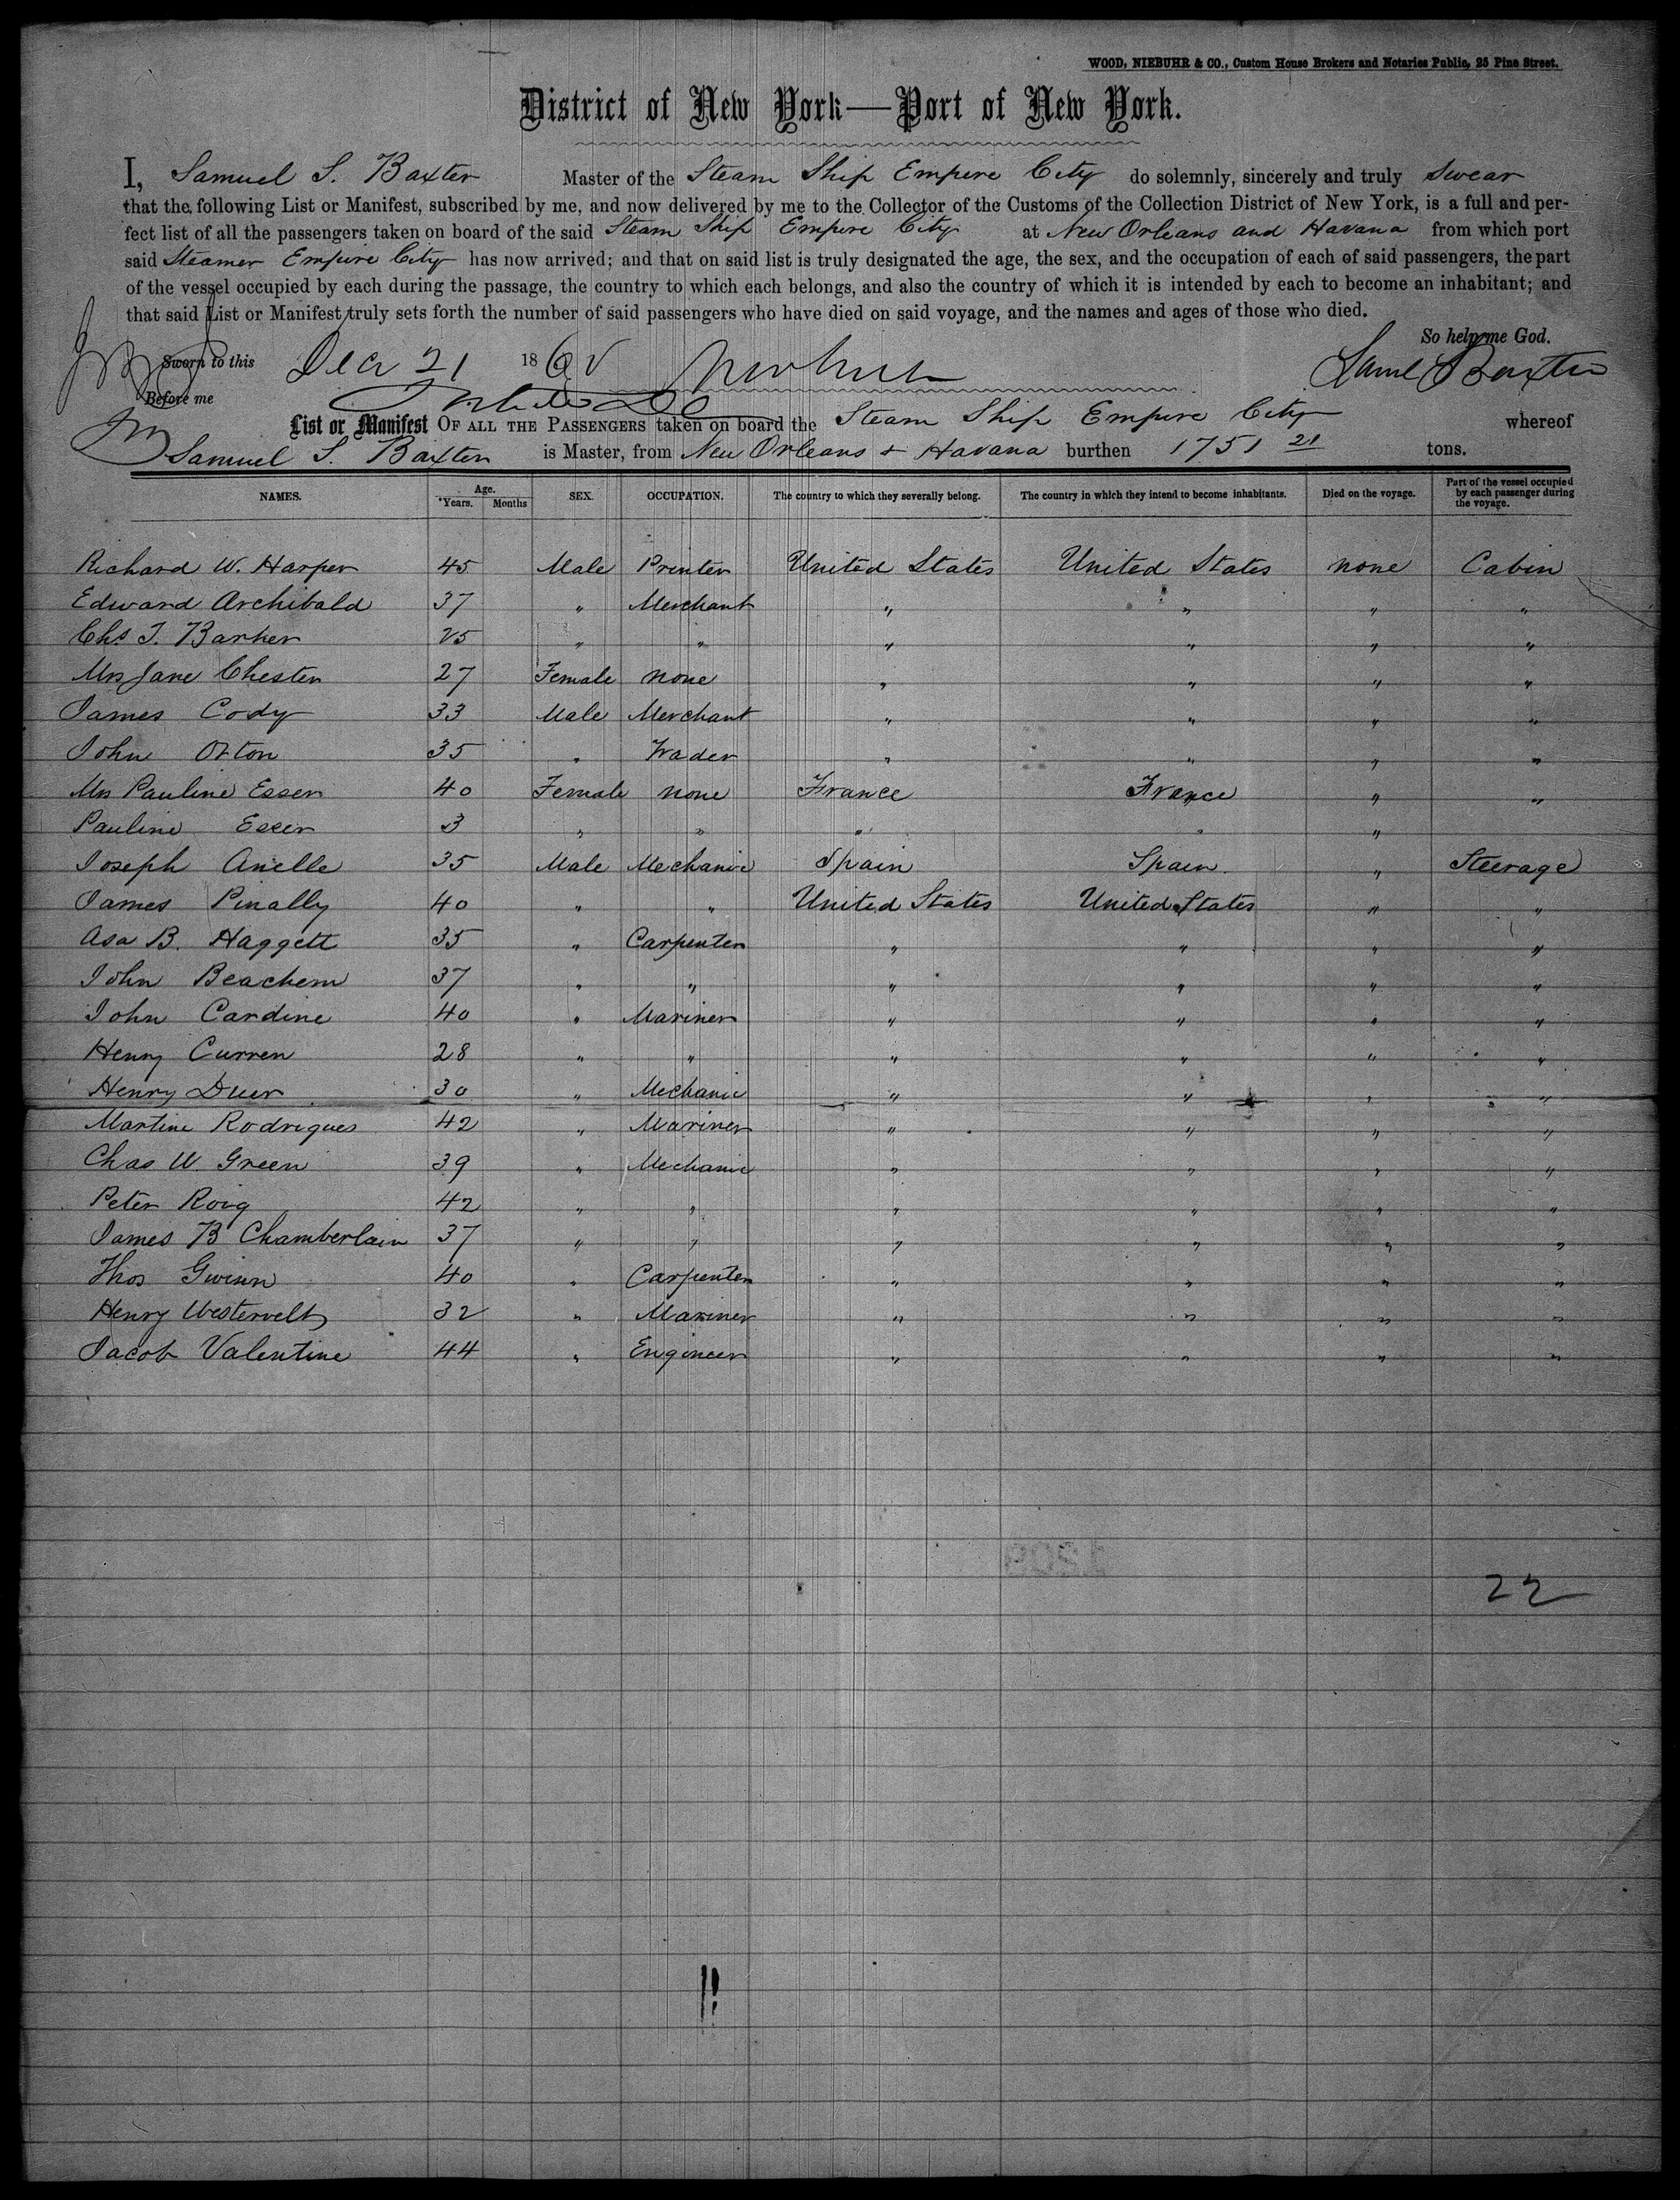 WOOD, NIEBUHR & CO., Custom House Brokers and Notaries Public, 25 Pine Street.
District of New York—Port of New York.
I, Samuel S. Baxter Master of the Steam Ship Empire City do solemnly, sincerely and truly swear
that the following List or Manifest, subscribed by me, and now delivered by me to the Collector of the Customs of the Collection District of New York, is a full and per-
fect list of all the passengers taken on board of the said Steam Ship Empire City at New Orleans and Havana from which port
said Steamer Empire City has now arrived; and that on said list is truly designated the age, the sex, and the occupation of each of said passengers, the part
of the vessel occupied by each during the passage, the country to which each belongs, and also the country of which it is intended by each to become an inhabitant; and
that said List or Manifest truly sets forth the number of said passengers who have died on said voyage, and the names and ages of those who died.
So help me God.
Sworn to this Dec 21 1862 Saml Baxter
Before me
List or Manifest OF ALL THE PASSENGERS taken on board the Steam Ship Empire City whereof
Samuel S. Baxter is Master, from New Orleans & Havana burthen 1751 21 tons.
NAMES. Age. Years. Months SEX. OCCUPATION. The country to which they severally belong. The country in which they intend to become inhabitants. Died on the voyage. Part of the vessel occupied by each passenger during the voyage.
Richard W. Harper 45 Male Printer United States United States none Cabin
Edward Archibald 37 " Merchant " " " "
Chs. T. Barker 25 " " " " " "
Mrs Jane Chester 27 Female none " " " "
James Cody 33 Male Merchant " " " "
John Orton 35 " Trader " " " "
Mrs Pauline Esser 40 Female none France France " "
Pauline Esser 3 " " " " "
Joseph Arielle 35 Male Mechanic Spain Spain " Steerage
James Pinally 40 " " United States United States " "
Asa B. Haggett 35 " Carpenter " " " "
John Beachem 37 " " " " " "
John Cardine 40 " Mariner " " " "
Henry Curren 28 " " " " " "
Henry Duer 30 " Mechanic " " " "
Martine Rodrigues 42 " Mariner " " " "
Chas W. Green 39 " Mechanic " " " "
Peter Roig 42 " " " " " "
James B Chamberlain 37 " " " " " "
Thos Gwinn 40 " Carpenter " " " "
Henry Westervelt 32 " Mariner " " " "
Jacob Valentine 44 " Engineer " " " "
22